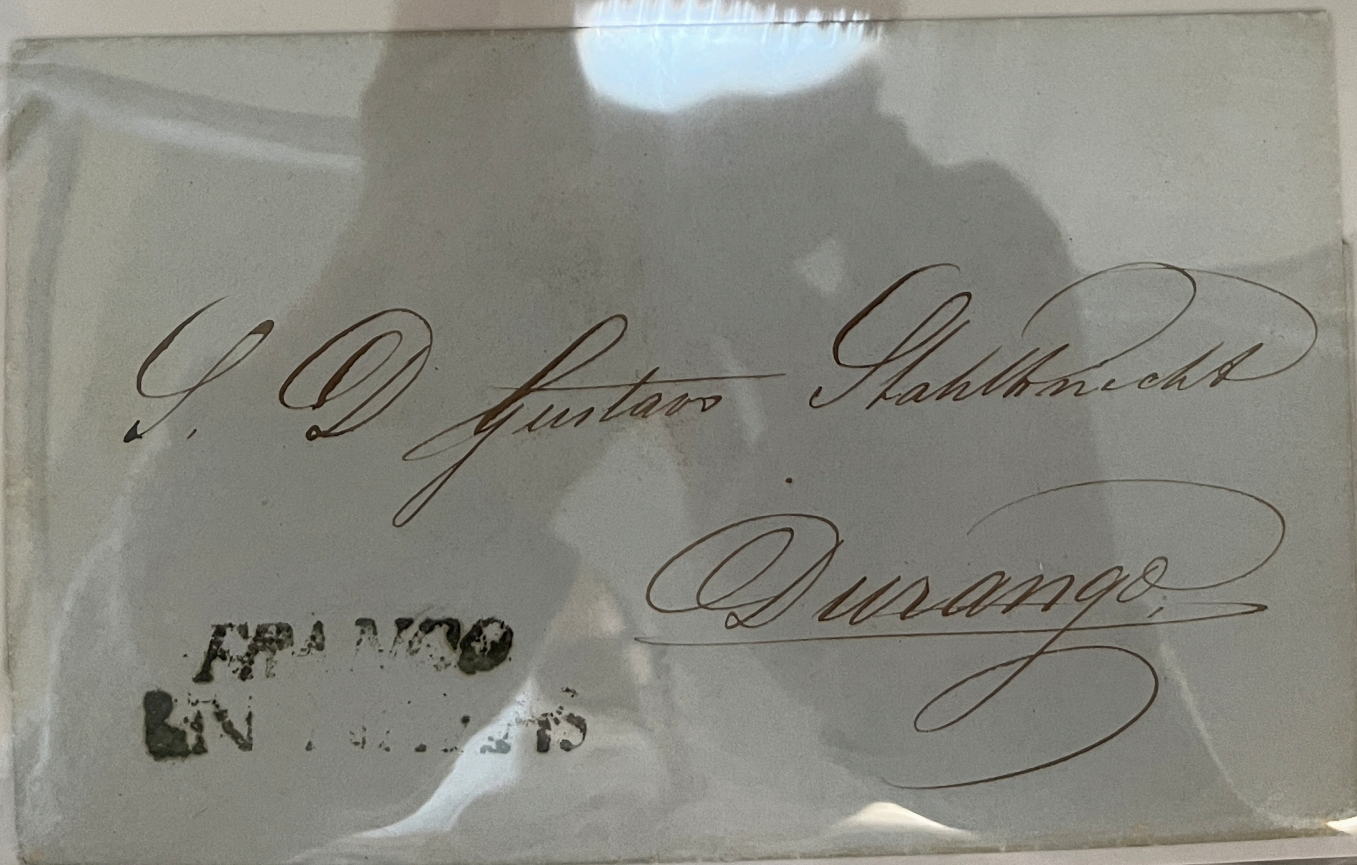 S. D Gustavo Stahlknecht
Durango.
FRANCO
EN